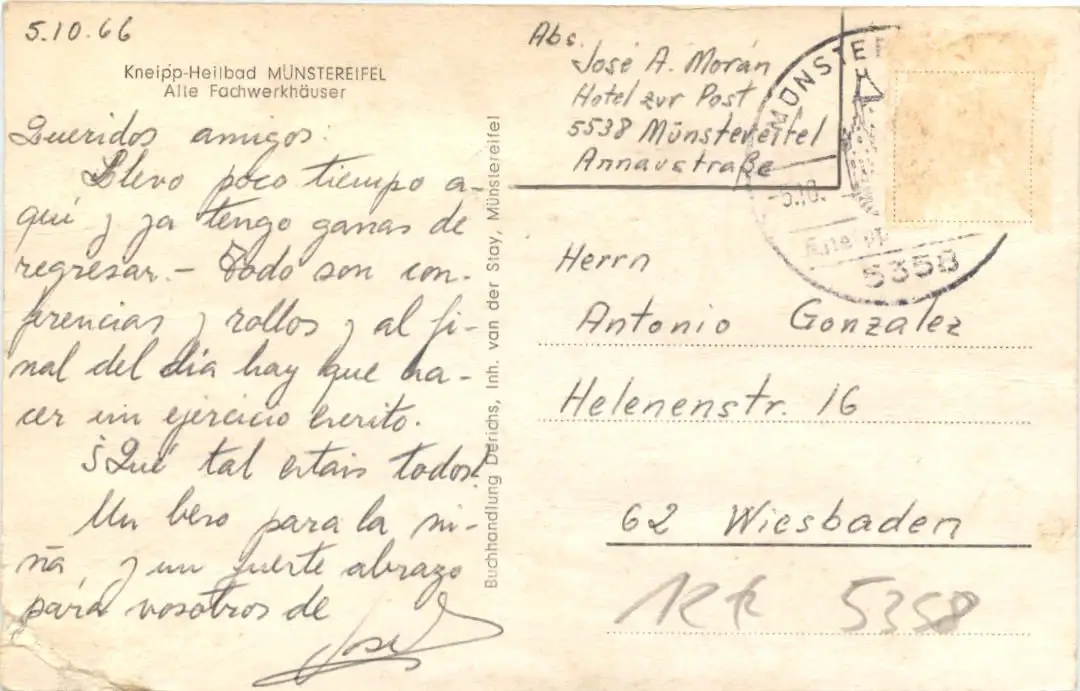 5.10.66
Kneipp-Heilbad MÜNSTEREIFEL
Alte Fachwerkhäuser
Queridos amigos:
Llevo poco tiempo a-
quí y ya tengo ganas de
regresar.- Todo son con-
ferencias y rollos y al fi-
nal del día hay que ha-
cer un ejercicio escrito.
¿Qué tal estais todos?
Un beso para la ni-
ña, y un fuerte abrazo
para vosotros de
José
Buchhandlung Derichs, Inh. van der Stay, Münstereifel
Abs.
José A. Morán
Hotel zur Post
5538 Münstereifel
Annaustraße
MÜNSTER
-5.10.
5358
Herrn
Antonio Gonzalez
Helenenstr. 16
62 Wiesbaden
5358